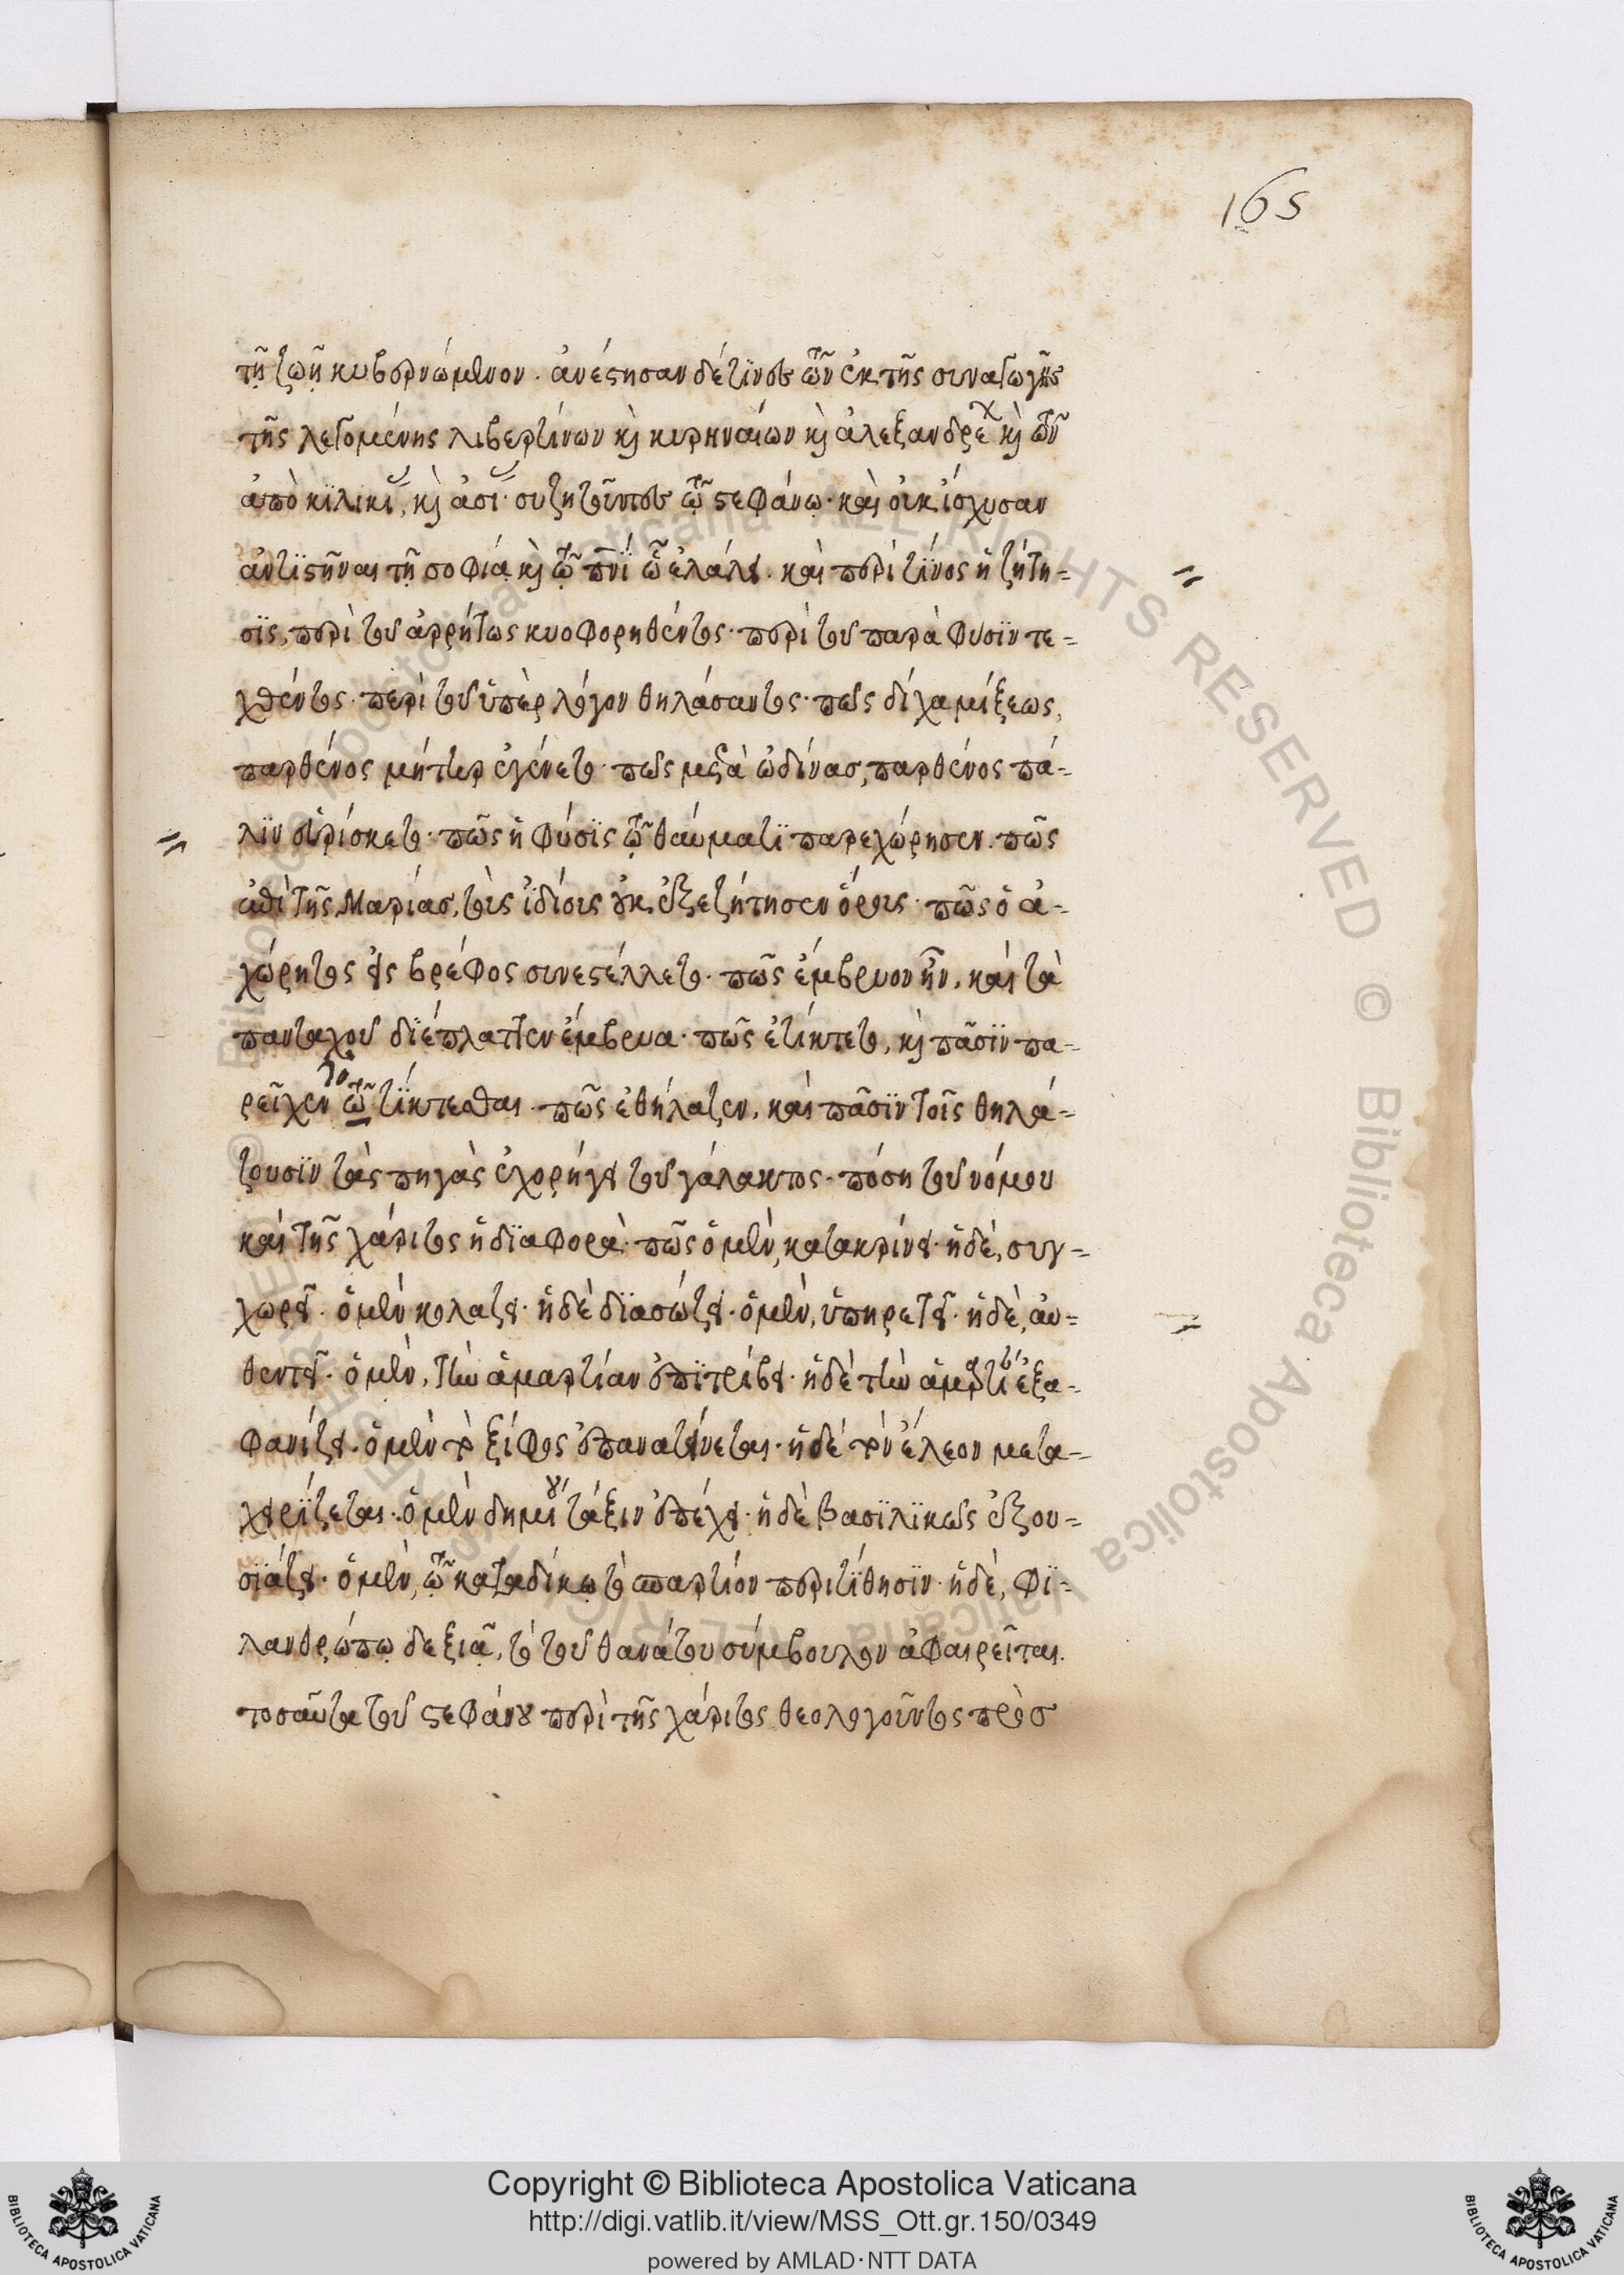 165
τῇ ζωῇ κυβερνώμενον. ἀνέστησαν δέ τινες τῶν ἐκ τῆς συναγωγῆς
τῆς λεγομένης λιβερτίνων κ̀ κυρηναίων κ̀ ἀλεξανδρέ κ̀ τῶν
ἀπὸ κιλικί, κ̀ ἀσί· συζητοῦντες τῷ στεφάνῳ· καὶ οὐκ ἴσχυσαν
ἀντιστῆναι τῇ σοφίᾳ κ̀ τῷ πν̅ι ᾧ ἐλάλει. καὶ περὶ τίνος ἡ ζήτη-
σις, περὶ τοῦ ἀρρήτως κυοφορηθέντος· περὶ τοῦ παρὰ φύσιν τε-
χθέντος· περὶ τοῦ ὑπὲρ λόγον θηλάσαντος· πῶς δίχα μίξεως,
παρθένος μήτηρ ἐγένετο· πῶς μετὰ ὠδίνας, παρθένος πά-
λιν εὑρίσκετο· πῶς ἡ φύσις τῷ θαύματι παρεχώρησεν. πῶς
ἐπὶ τῆς Μαρίας, τοὺς ἰδίους οὐκ ἐξεζήτησεν ὅρους· πῶς ὁ ἀ-
χώρητος εἰς βρέφος συνεστέλλετο· πῶς ἔμβρυον ἦν, καὶ τὰ
πανταχοῦ διέπλαττεν ἔμβρυα· πῶς ἐτίκτετο, κ̀ πᾶσιν πα-
ρεῖχεν τῷ το τίκτεσθαι· πῶς ἐθήλαζεν, καὶ πᾶσιν τοῖς θηλά-
ζουσιν τὰς πηγὰς ἐχορήγει τοῦ γάλακτος· πόση τοῦ νόμου
καὶ τῆς χάριτος ἡ διαφορὰ· πῶς ὁ μὲν, κατακρίνει· ἡ δὲ, συγ-
χωρεῖ· ὁ μὲν κολάζει· ἡ δὲ διασώζει· ὁ μὲν, ὑπηρετεῖ· ἡ δὲ, αὐ-
θεντεῖ· ὁ μὲν, τὴν ἁμαρτίαν ἐπιτρίβει· ἡ δὲ τὴν ἁμαρτί ἐξα-
φανίζει· ὁ μὲν τὸ ξίφος ἐπανατείνεται· ἡ δὲ τὸν ἔλεον μετα-
χειρίζεται· ὁ μὲν δημίου τάξιν ἐπέχει· ἡ δὲ βασιλικῶς ἐξου-
σιάζει· ὁ μὲν, τῷ καταδίκῳ τὸ σπαρτίον περιτίθησιν· ἡ δὲ, φι-
λανθρώπῳ δεξιᾷ, τὸ τοῦ θανάτου σύμβουλον ἀφαιρεῖται.
τοσαῦτα τοῦ στεφάνου περὶ τῆς χάριτος θεολογοῦντος πρὸσ
Copyright © Biblioteca Apostolica Vaticana
http://digi.vatlib.it/view/MSS_Ott.gr.150/0349
powered by AMLAD·NTT DATA